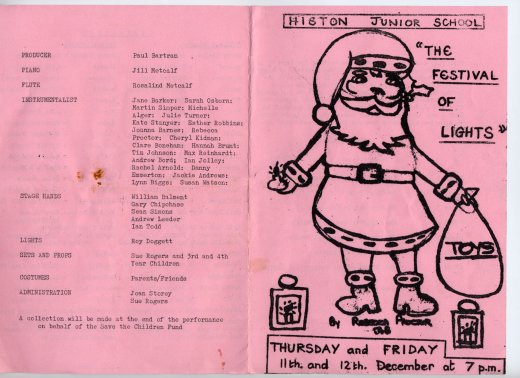 PRODUCER Paul Bartram
PIANO Jill Metcalf
FLUTE Rosalind Metcalf
INSTRUMENTALIST Jane Barker: Sarah Osborn:
Martin Sinper: Michelle
Alger: Julie Turner:
Kate Stanyer: Esther Robbins:
Joanna Barnes: Rebecca
Proctor: Cheryl Kidman:
Clare Bozeham: Hannah Brunt:
Tim Johnson: Max Reinhardt:
Andrew Bord; Ian Jolley:
Rachel Arnold: Danny
Emmerton: Jackie Andrews:
Lynn Biggs: Susan Watson:
STAGE HANDS William Balment
Gary Chipchase
Sean Simons
Andrew Leeder
Ian Todd
LIGHTS Roy Doggett
SETS AND PROPS Sue Rogers and 3rd and 4th
Year Children
COSTUMES Parents/Friends
ADMINISTRATION Joan Storey
Sue Rogers
A collection will be made at the end of the performance
on behalf of the Save the Children Fund
HISTON JUNIOR SCHOOL
"THE
FESTIVAL
OF
LIGHTS"
TOYS
By Rebecca
THURSDAY and FRIDAY
11th. and 12th. December at 7 p.m.